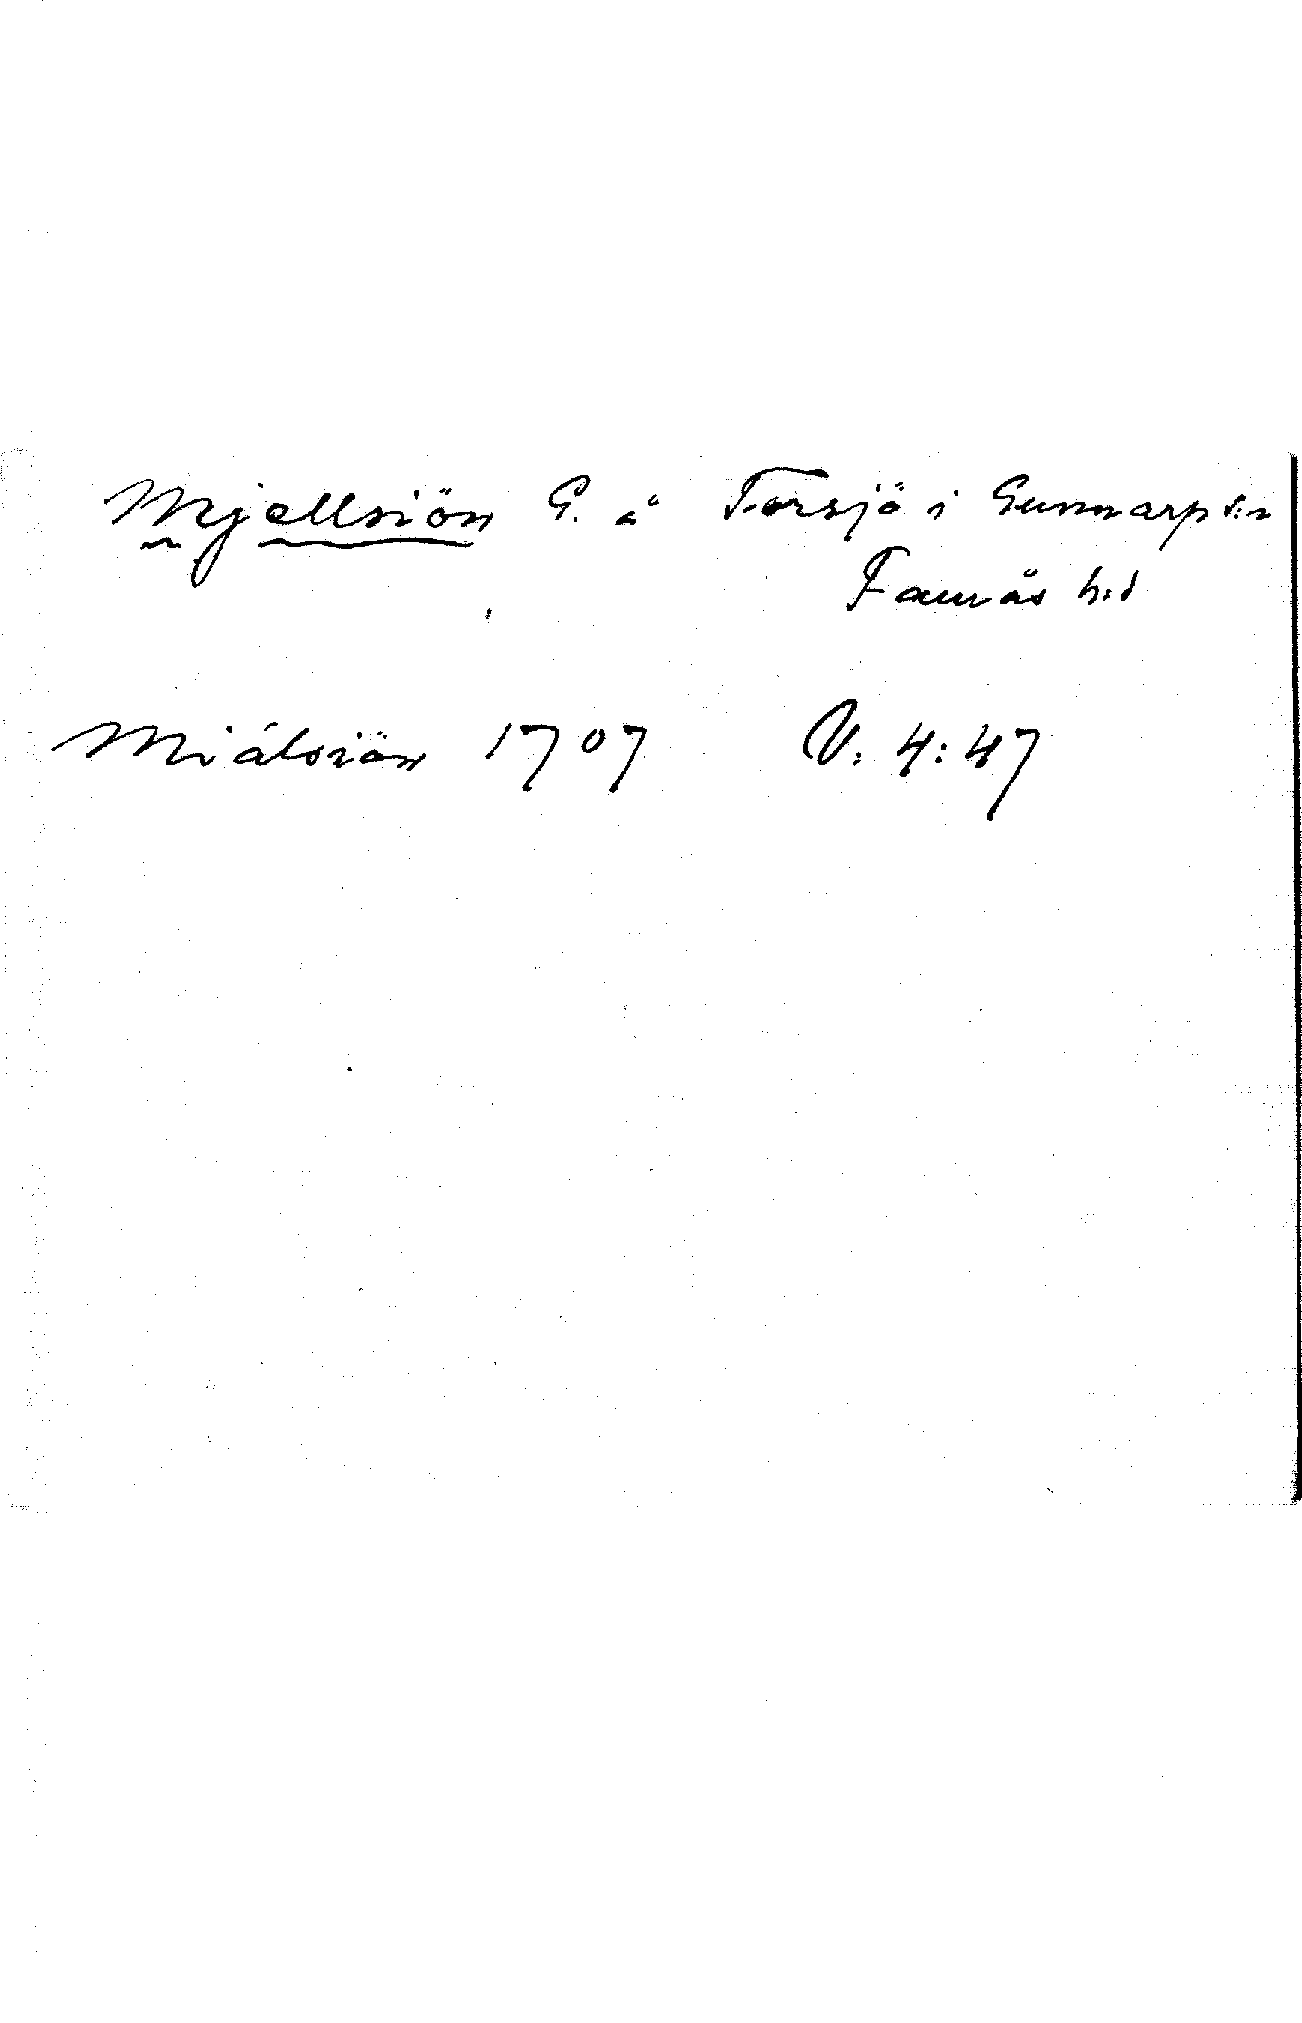 Mjellsiön G. å Torsjö i Gunnarp s:n
Faurås h:d
Miálsiön 1707 V. 4:47